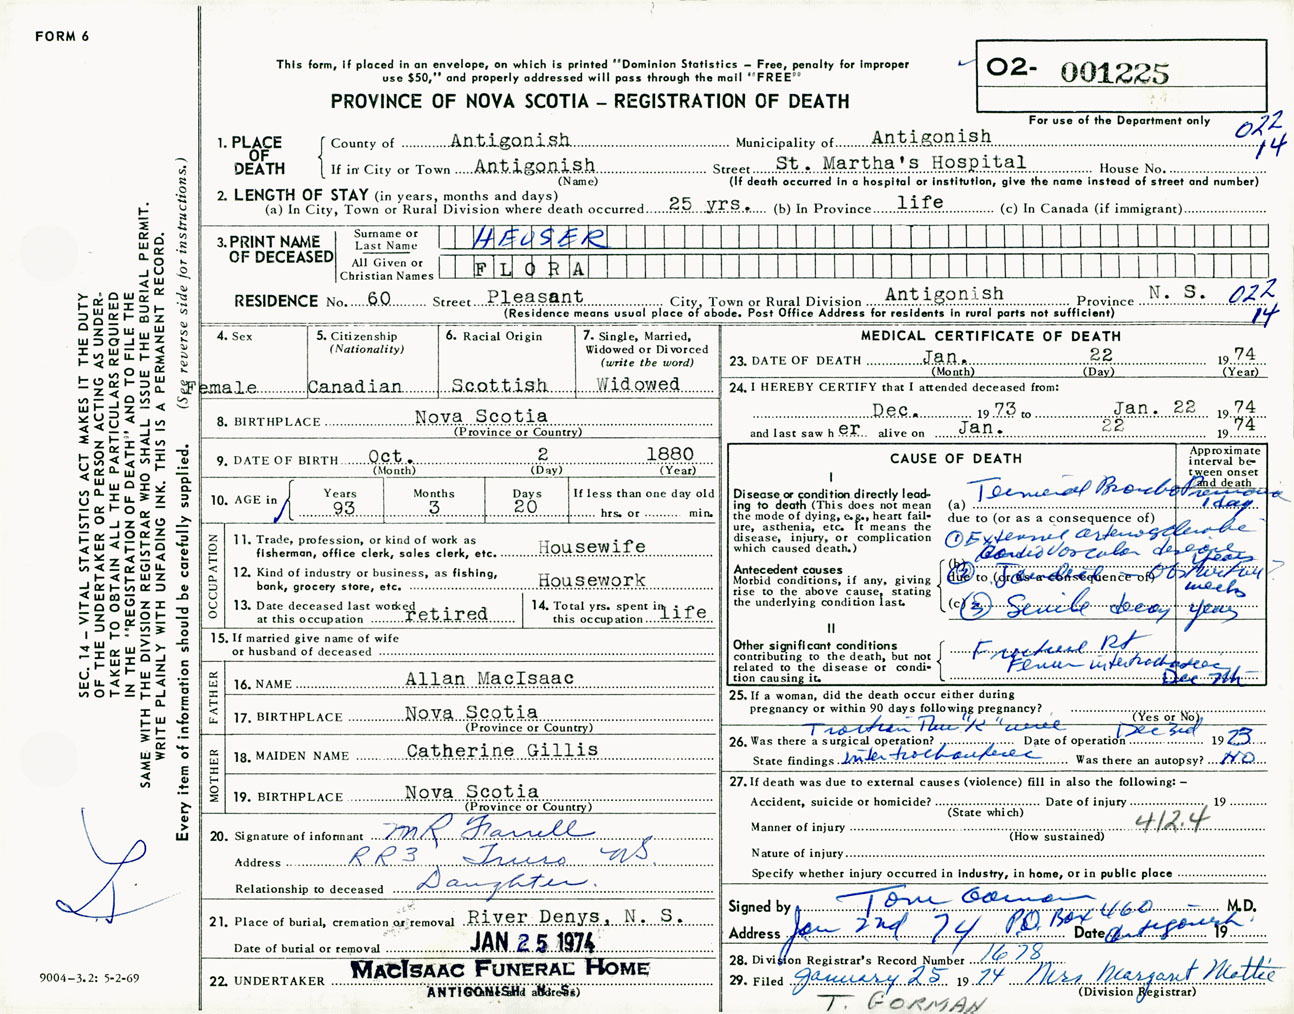 FORM 6
This form, if placed in an envelope, on which is printed "Dominion Statistics – Free, penalty for improper
use $50," and properly addressed will pass through the mail "FREE"
PROVINCE OF NOVA SCOTIA – REGISTRATION OF DEATH
O2- 001225
For use of the Department only
022
14
1. PLACE OF DEATH
County of Antigonish Municipality of Antigonish
If in City or Town Antigonish Street St. Martha's Hospital House No.
(Name) (If death occurred in a hospital or institution, give the name instead of street and number)
2. LENGTH OF STAY (in years, months and days)
(a) In City, Town or Rural Division where death occurred 25 yrs. (b) In Province life (c) In Canada (if immigrant)
3. PRINT NAME OF DECEASED
Surname or Last Name HEUSER
All Given or Christian Names FLORA
RESIDENCE No. 60 Street Pleasant City, Town or Rural Division Antigonish Province N. S. 022
(Residence means usual place of abode. Post Office Address for residents in rural parts not sufficient) 14
4. Sex
Female
5. Citizenship
(Nationality)
Canadian
6. Racial Origin
Scottish
7. Single, Married,
Widowed or Divorced
(write the word)
Widowed
8. BIRTHPLACE Nova Scotia
(Province or Country)
9. DATE OF BIRTH Oct. 2 1880
(Month) (Day) (Year)
10. AGE in
Years Months Days If less than one day old
93 3 20 hrs. or min.
OCCUPATION
11. Trade, profession, or kind of work as
fisherman, office clerk, sales clerk, etc. Housewife
12. Kind of industry or business, as fishing,
bank, grocery store, etc. Housework
13. Date deceased last worked
at this occupation retired
14. Total yrs. spent in
this occupation life
15. If married give name of wife
or husband of deceased
FATHER
16. NAME Allan MacIsaac
17. BIRTHPLACE Nova Scotia
(Province or Country)
MOTHER
18. MAIDEN NAME Catherine Gillis
19. BIRTHPLACE Nova Scotia
(Province or Country)
20. Signature of informant MR Farrell
Address RR3 Truro NS.
Relationship to deceased Daughter.
21. Place of burial, cremation or removal River Denys, N. S.
Date of burial or removal JAN 25 1974
22. UNDERTAKER MACISAAC FUNERAL HOME
ANTIGONISH N. S.
MEDICAL CERTIFICATE OF DEATH
23. DATE OF DEATH Jan. 22 1974
(Month) (Day) (Year)
24. I HEREBY CERTIFY that I attended deceased from:
Dec. 1973 to Jan. 22 1974
and last saw her alive on Jan. 22 1974
CAUSE OF DEATH
Approximate
interval be-
tween onset
and death
I
Disease or condition directly lead-
ing to death (This does not mean
the mode of dying, e.g., heart fail-
ure, asthenia, etc. It means the
disease, injury, or complication
which caused death.)
(a) Terminal Broncho Pneumonia 1 day
due to (or as a consequence of)
① Extensive arteriosclerotic
(b) Cardiovascular disease years
Antecedent causes
Morbid conditions, if any, giving
rise to the above cause, stating
the underlying condition last.
due to (or as a consequence of)
weeks
(c) ③ Senile decay years
II
Other significant conditions
contributing to the death, but not
related to the disease or condi-
tion causing it.
Fractured Rt
Femur intertrochanteric
Dec 7th
25. If a woman, did the death occur either during
pregnancy or within 90 days following pregnancy?
(Yes or No)
26. Was there a surgical operation? Date of operation Dec 3rd 1973
State findings intertrochanteric Was there an autopsy? NO
27. If death was due to external causes (violence) fill in also the following: –
Accident, suicide or homicide? Date of injury 19
(State which)
Manner of injury 412.4
(How sustained)
Nature of injury
Specify whether injury occurred in industry, in home, or in public place
Signed by Tom Gorman M.D.
Address Jan 2nd 74 P.O. Box 460 Antigonish Date 19
28. Division Registrar's Record Number 1678
29. Filed January 25 1974 Mrs Margaret Mattie
(Division Registrar)
T. GORMAN
SEC. 14 – VITAL STATISTICS ACT MAKES IT THE DUTY
OF THE UNDERTAKER OR PERSON ACTING AS UNDER-
TAKER TO OBTAIN ALL THE PARTICULARS REQUIRED
IN THE "REGISTRATION OF DEATH" AND TO FILE THE
SAME WITH THE DIVISION REGISTRAR WHO SHALL ISSUE THE BURIAL PERMIT.
WRITE PLAINLY WITH UNFADING INK. THIS IS A PERMANENT RECORD.
Every item of information should be carefully supplied. (See reverse side for instructions.)
9004–3.2: 5-2-69